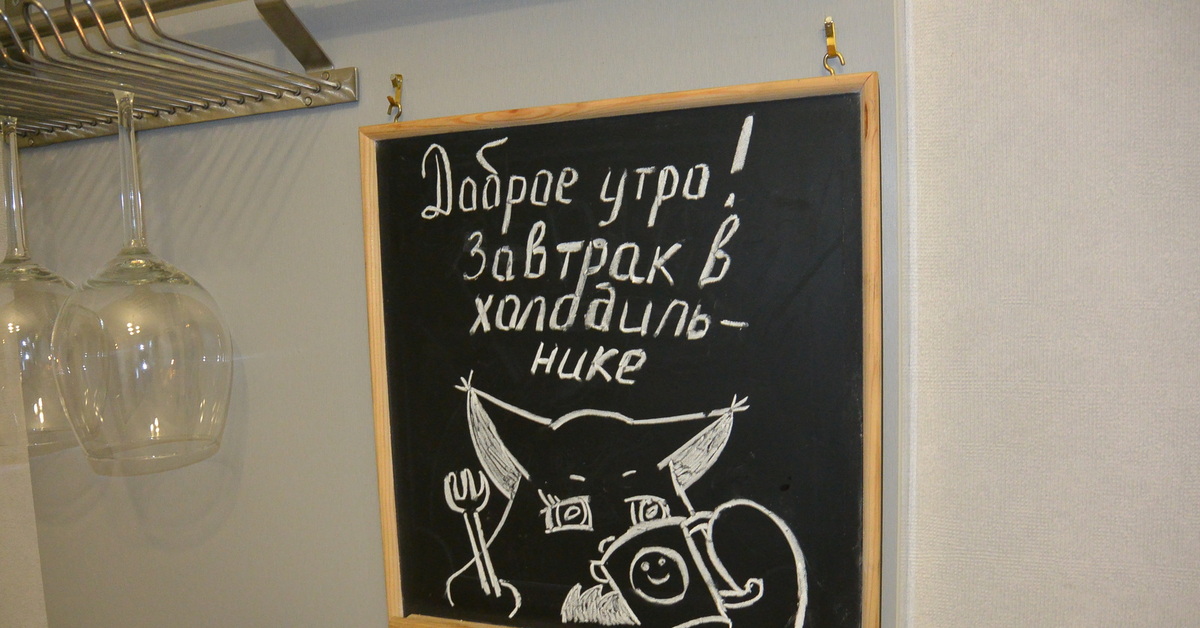 Доброе утро!
Завтрак в
холодиль-
нике